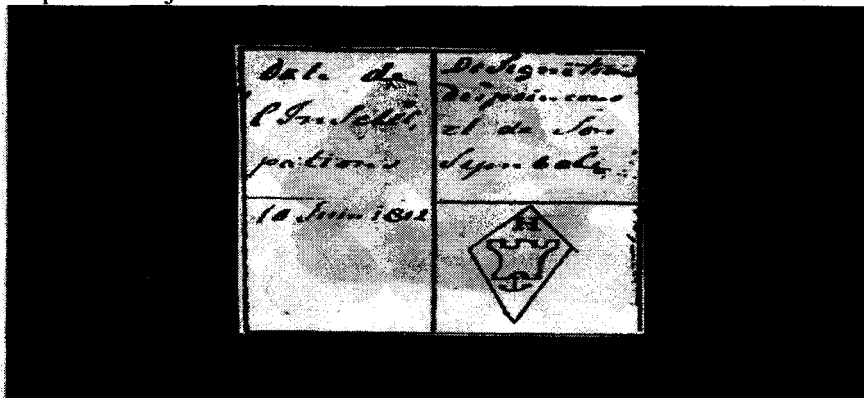 Date de
l'Inscul
pations
Designation
Du poincons
et de Son
Symbole
10 Juin
H
C